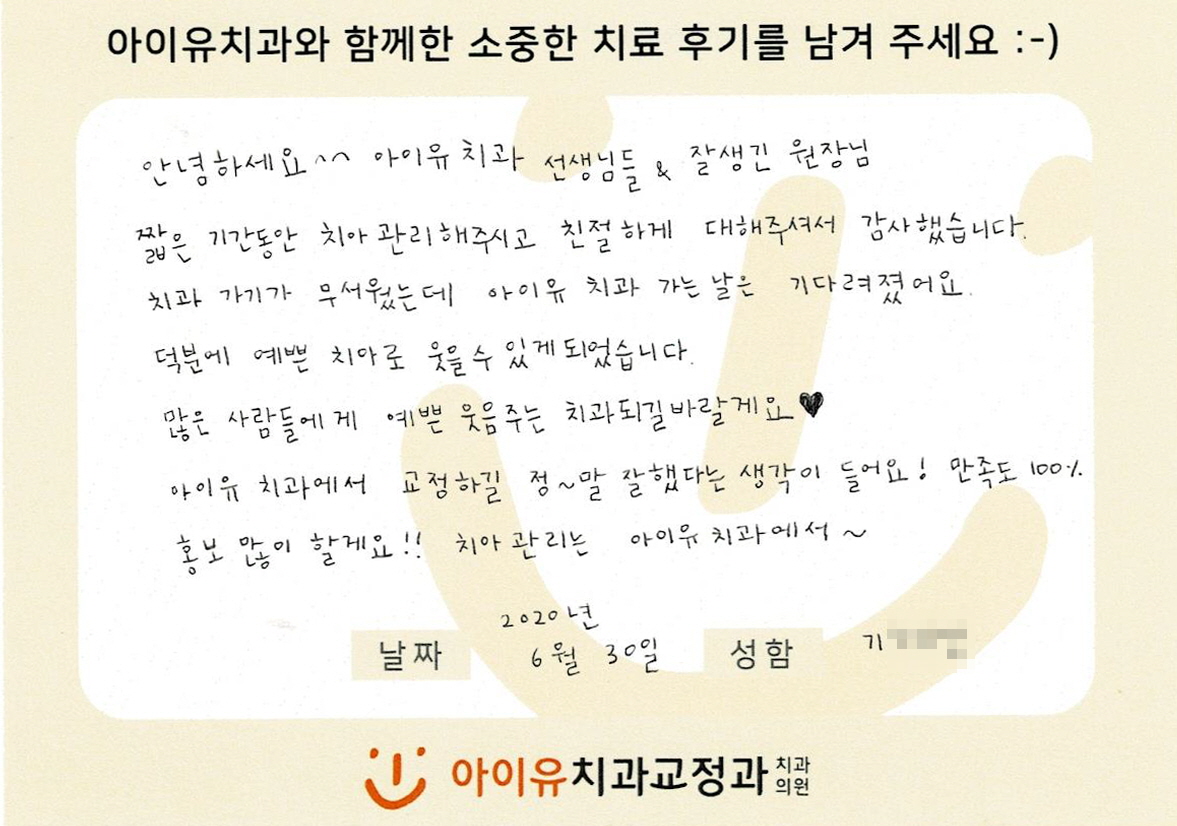 아이유치과와 함께한 소중한 치료 후기를 남겨 주세요 :-)
안녕하세요^^ 아이유치과 선생님들 & 잘생긴 원장님
짧은 기간동안 치아관리해주시고 친절하게 대해주셔서 감사했습니다.
치과 가기가 무서웠는데 아이유 치과 가는날은 기다려졌어요.
덕분에 예쁜 치아로 웃을수 있게되었습니다.
많은 사람들에게 예쁜 웃음주는 치과되길바랄게요♥
아이유 치과에서 교정하길 정~말 잘했다는 생각이 들어요! 만족도 100%
홍보 많이 할게요!! 치아관리는 아이유치과에서~
2020년
날짜 6월 30일 성함 기
아이유치과교정과 치과
의원